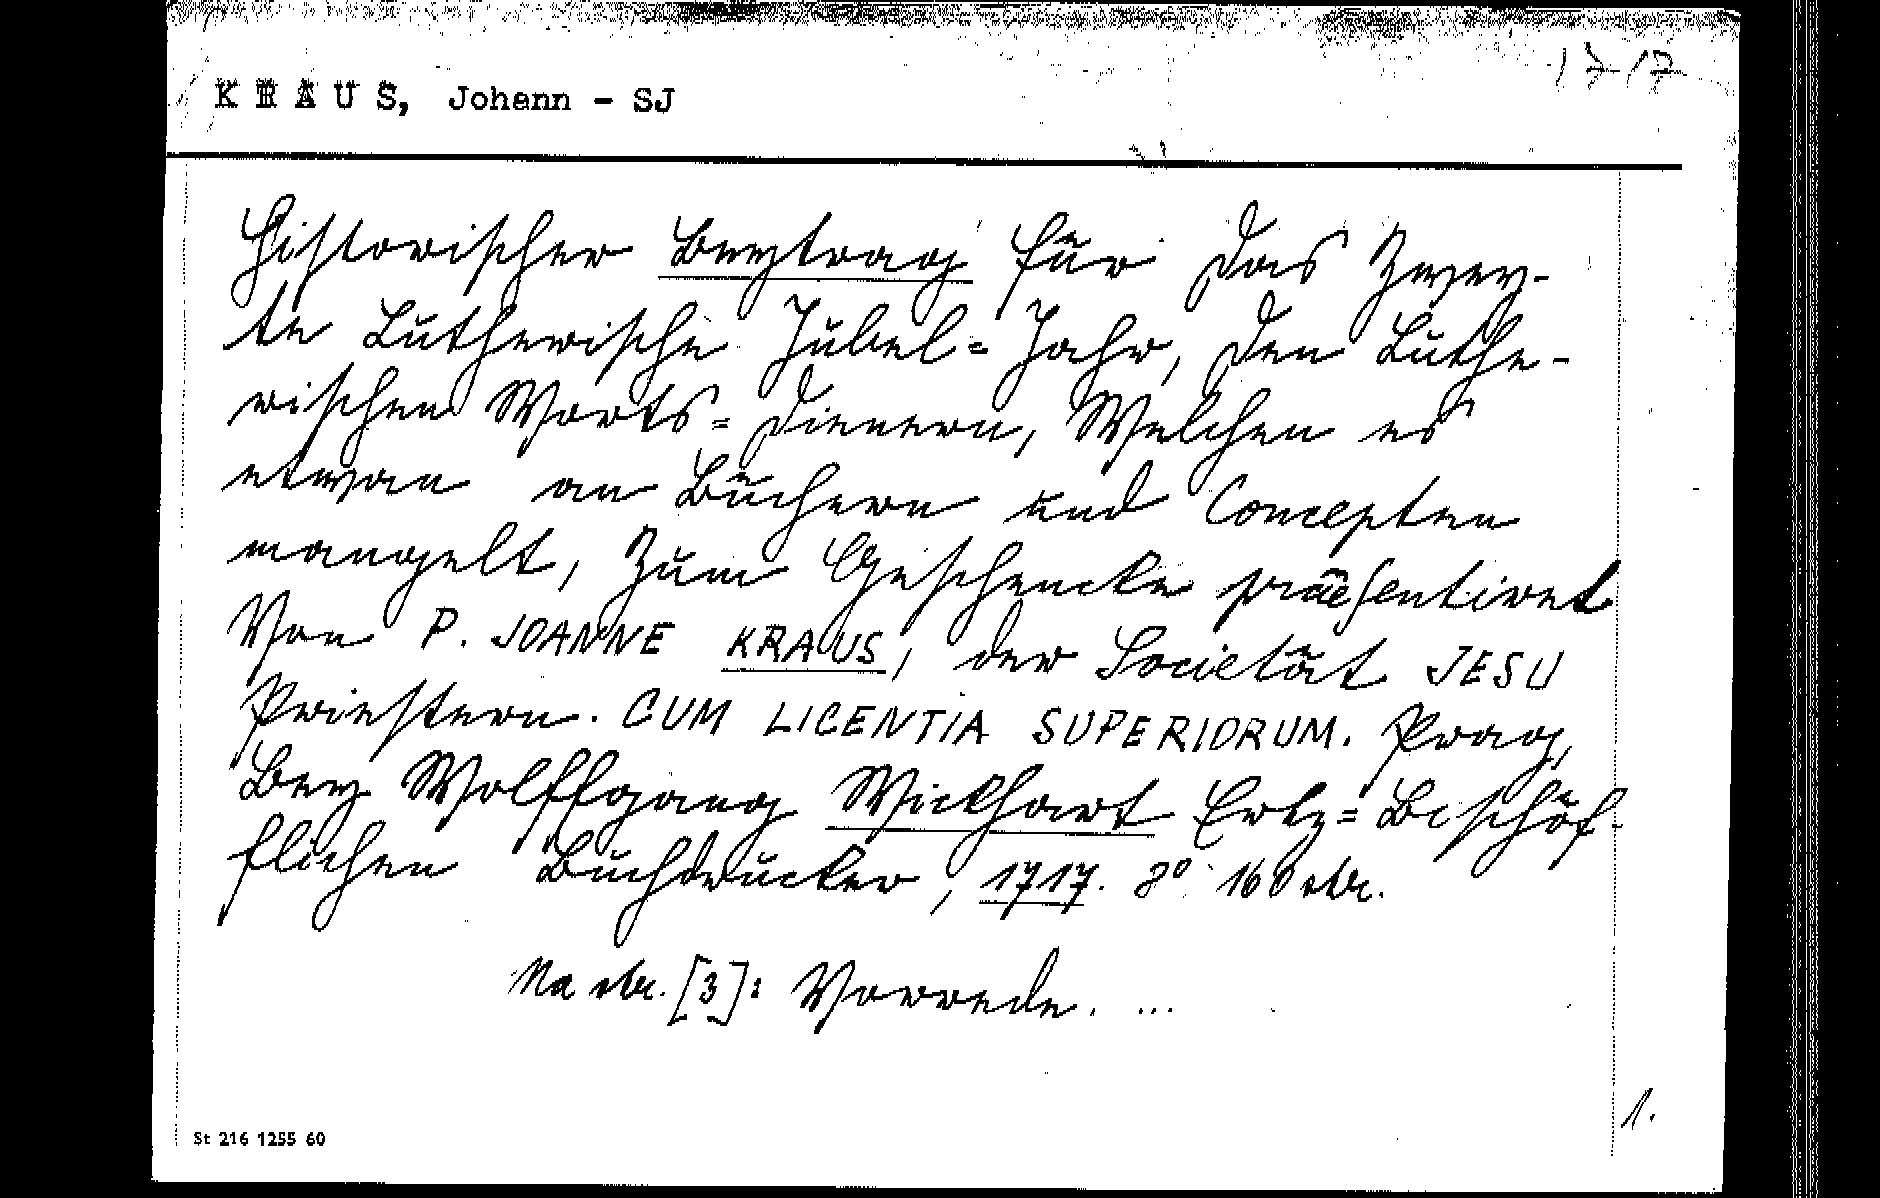 1717
KRAUS, Johann - SJ
Historischer Beytrag für das Zwey-
te Lutherische Jubel= Jahr, den Luthe-
rischen Worts= Dienern, Welchen es
etwan an Büchern und Concepten
mangelt, Zum Geschencke præsentiret
Von P. JOANNE KRAUS, der Societät JESU
Priestern. CUM LICENTIA SUPERIORUM. Prag,
Bey Wolffgang Wickhart Ertz= Bischöf-
flichen Buchdrucker, 1717. 8° 160 str.
Na str. [3]: Vorrede. ...
1.
St 216 1255 60